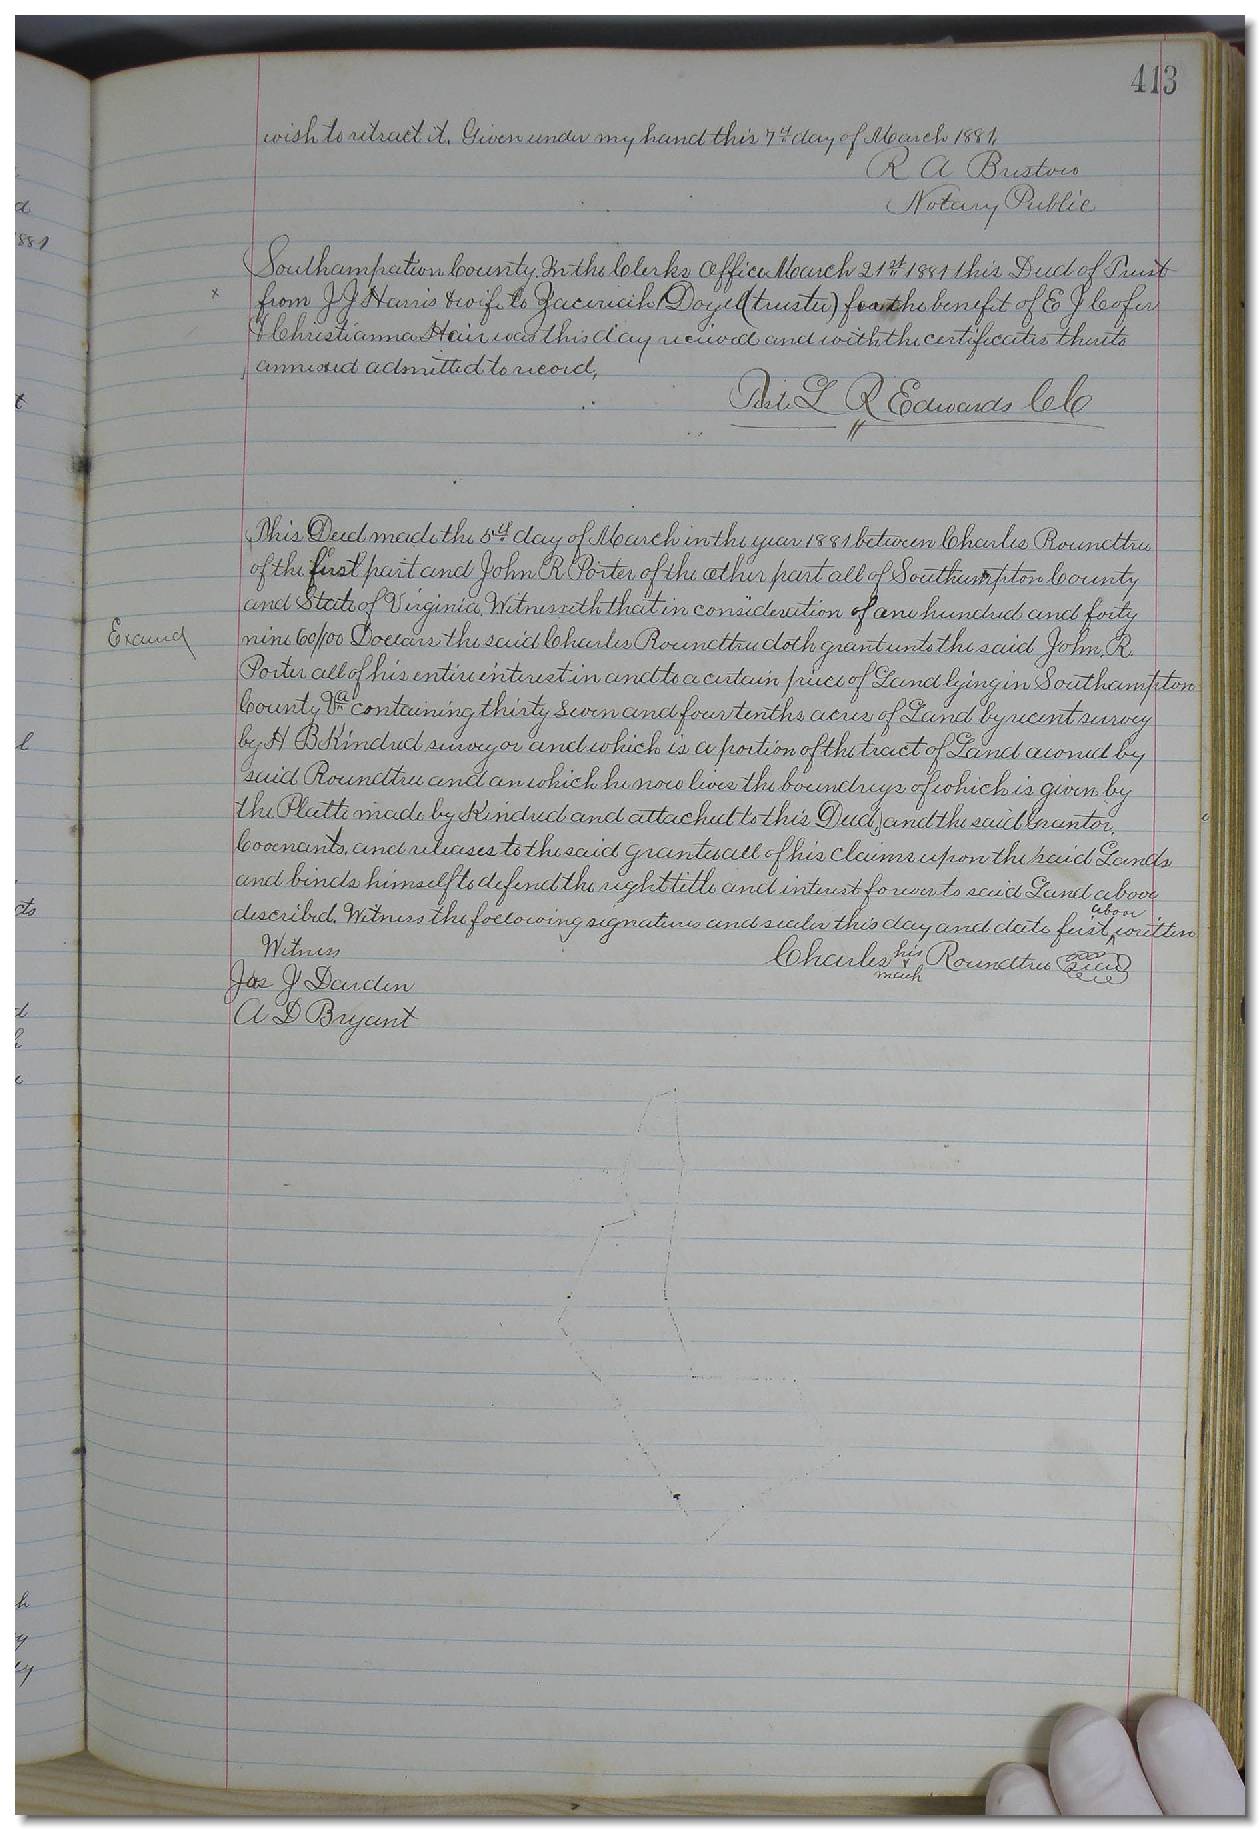 413
wish to retract it. Given under my hand this 7th day of March 1881.
R A Bristow
Notary Public
Southampation County. In the Clerks Office March 21st 1881 this Deed of Trust
from J J Harris & wife to Zacerich Doyel (trustee) for the benefit of E J Cofer
& Christianna Hair was this day received and with the certificates thereto
annexed admitted to record,
Teste L R Edwards CC
This Deed made the 5th day of March in the year 1881 between Charles Roundtree
of the first part and John R Porter of the other part all of Southampton County
and State of Virginia. Witnesseth that in consideration of one hundred and forty
Examd
nine 60/100 Doccars the said Charles Roundtree doth grant unto the said John R.
Porter all of his entire interest in and to a certain piece of Land lying in Southampton
County Va containing thirty seven and four tenths acres of Land by recent survey
by H B Kindred surveyor and which is a portion of the tract of Land owned by
said Roundtree and on which he now lives the boundreys of which is given by
the Platte made by Kindred and attached to this Deed, and the said Grantor,
Covenants, and releases to the said grantee all of his claims upon the said Lands
and binds himself to defend the right title and interest forever to said Land above
described. Witness the following signatures and seales this day and date first above written
Witness
Charles his x mark Roundtree seal
Jas J Darden
A D Bryant
d
1881
t
l
cts
d
h
y
ly